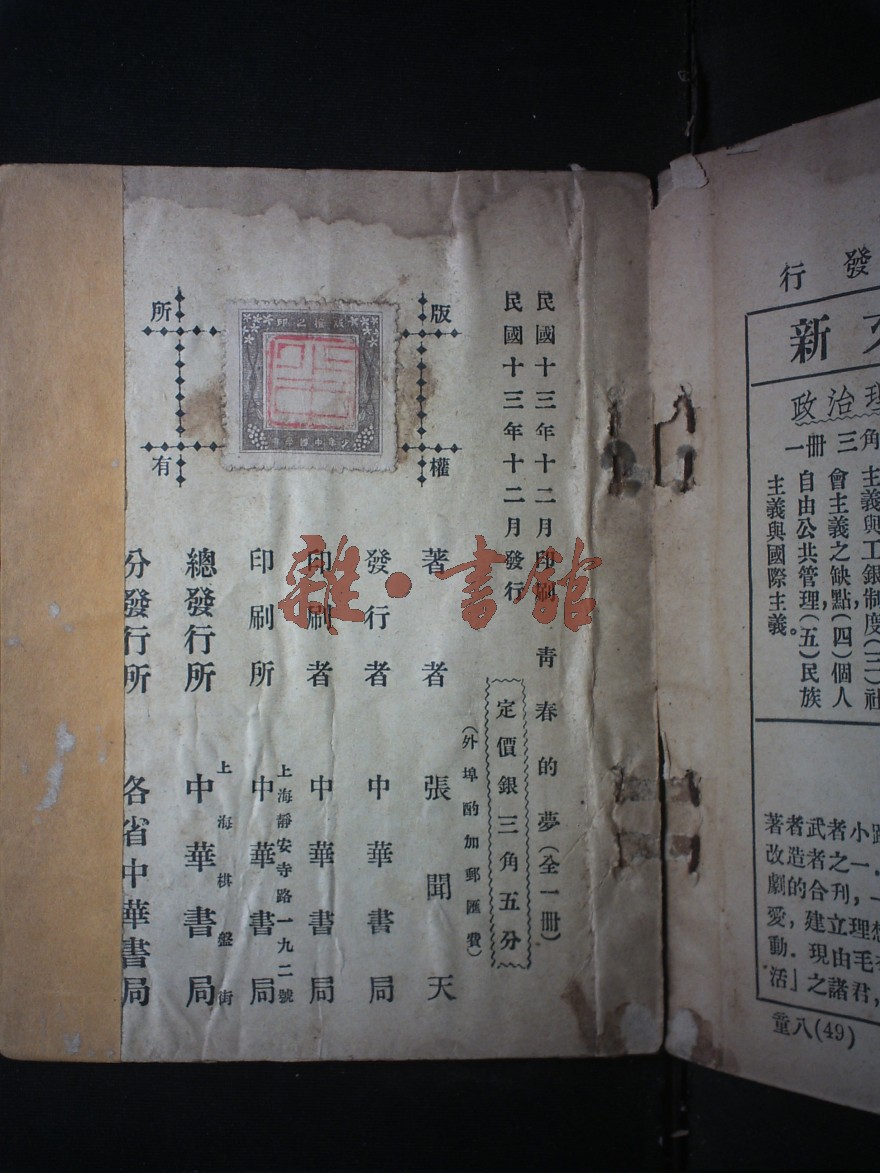 發行
新文
政治理
一冊三角
主義與工銀制度(三)社
會主義之缺點(四)個人
自由公共管理(五)民族
主義與國際主義。
著者武者小路
改造者之一.
劇的合刊,一
愛,建立理想
動.現由毛
活」之諸君,
童八(49)
民國十三年十二月印刷
民國十三年十二月發行
青春的夢(全一冊)
定價銀三角五分
(外埠酌加郵匯費)
著者 張聞天
發行者 中華書局
印刷者 中華書局
上海靜安寺路一九二號
印刷所 中華書局
上海棋盤街
總發行所 中華書局
分發行所 各省中華書局
版權所有
版權之印
少年中國學會
雜·書館